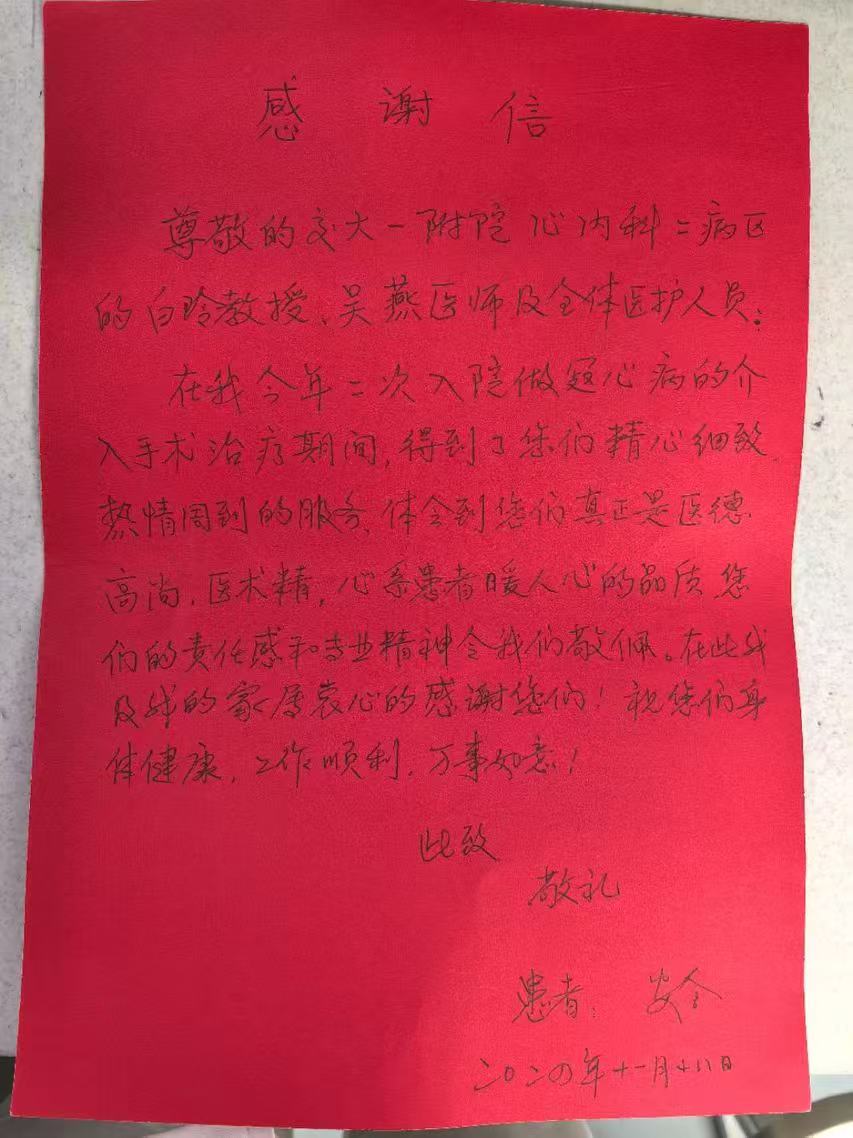 感谢信
尊敬的交大一附院心内科二病区
的白玲教授、吴燕医师及全体医护人员:
在我今年二次入院做冠心病的介
入手术治疗期间,得到了您们精心细致
热情周到的服务、体会到您们真正是医德
高尚,医术精,心系患者暖人心的品质,您
们的责任感和专业精神令我们敬佩。在此我
及我的家属衷心的感谢您们!祝您们身
体健康,工作顺利,万事如意!
此致
敬礼
患者:安全
二〇二四年十一月十八日